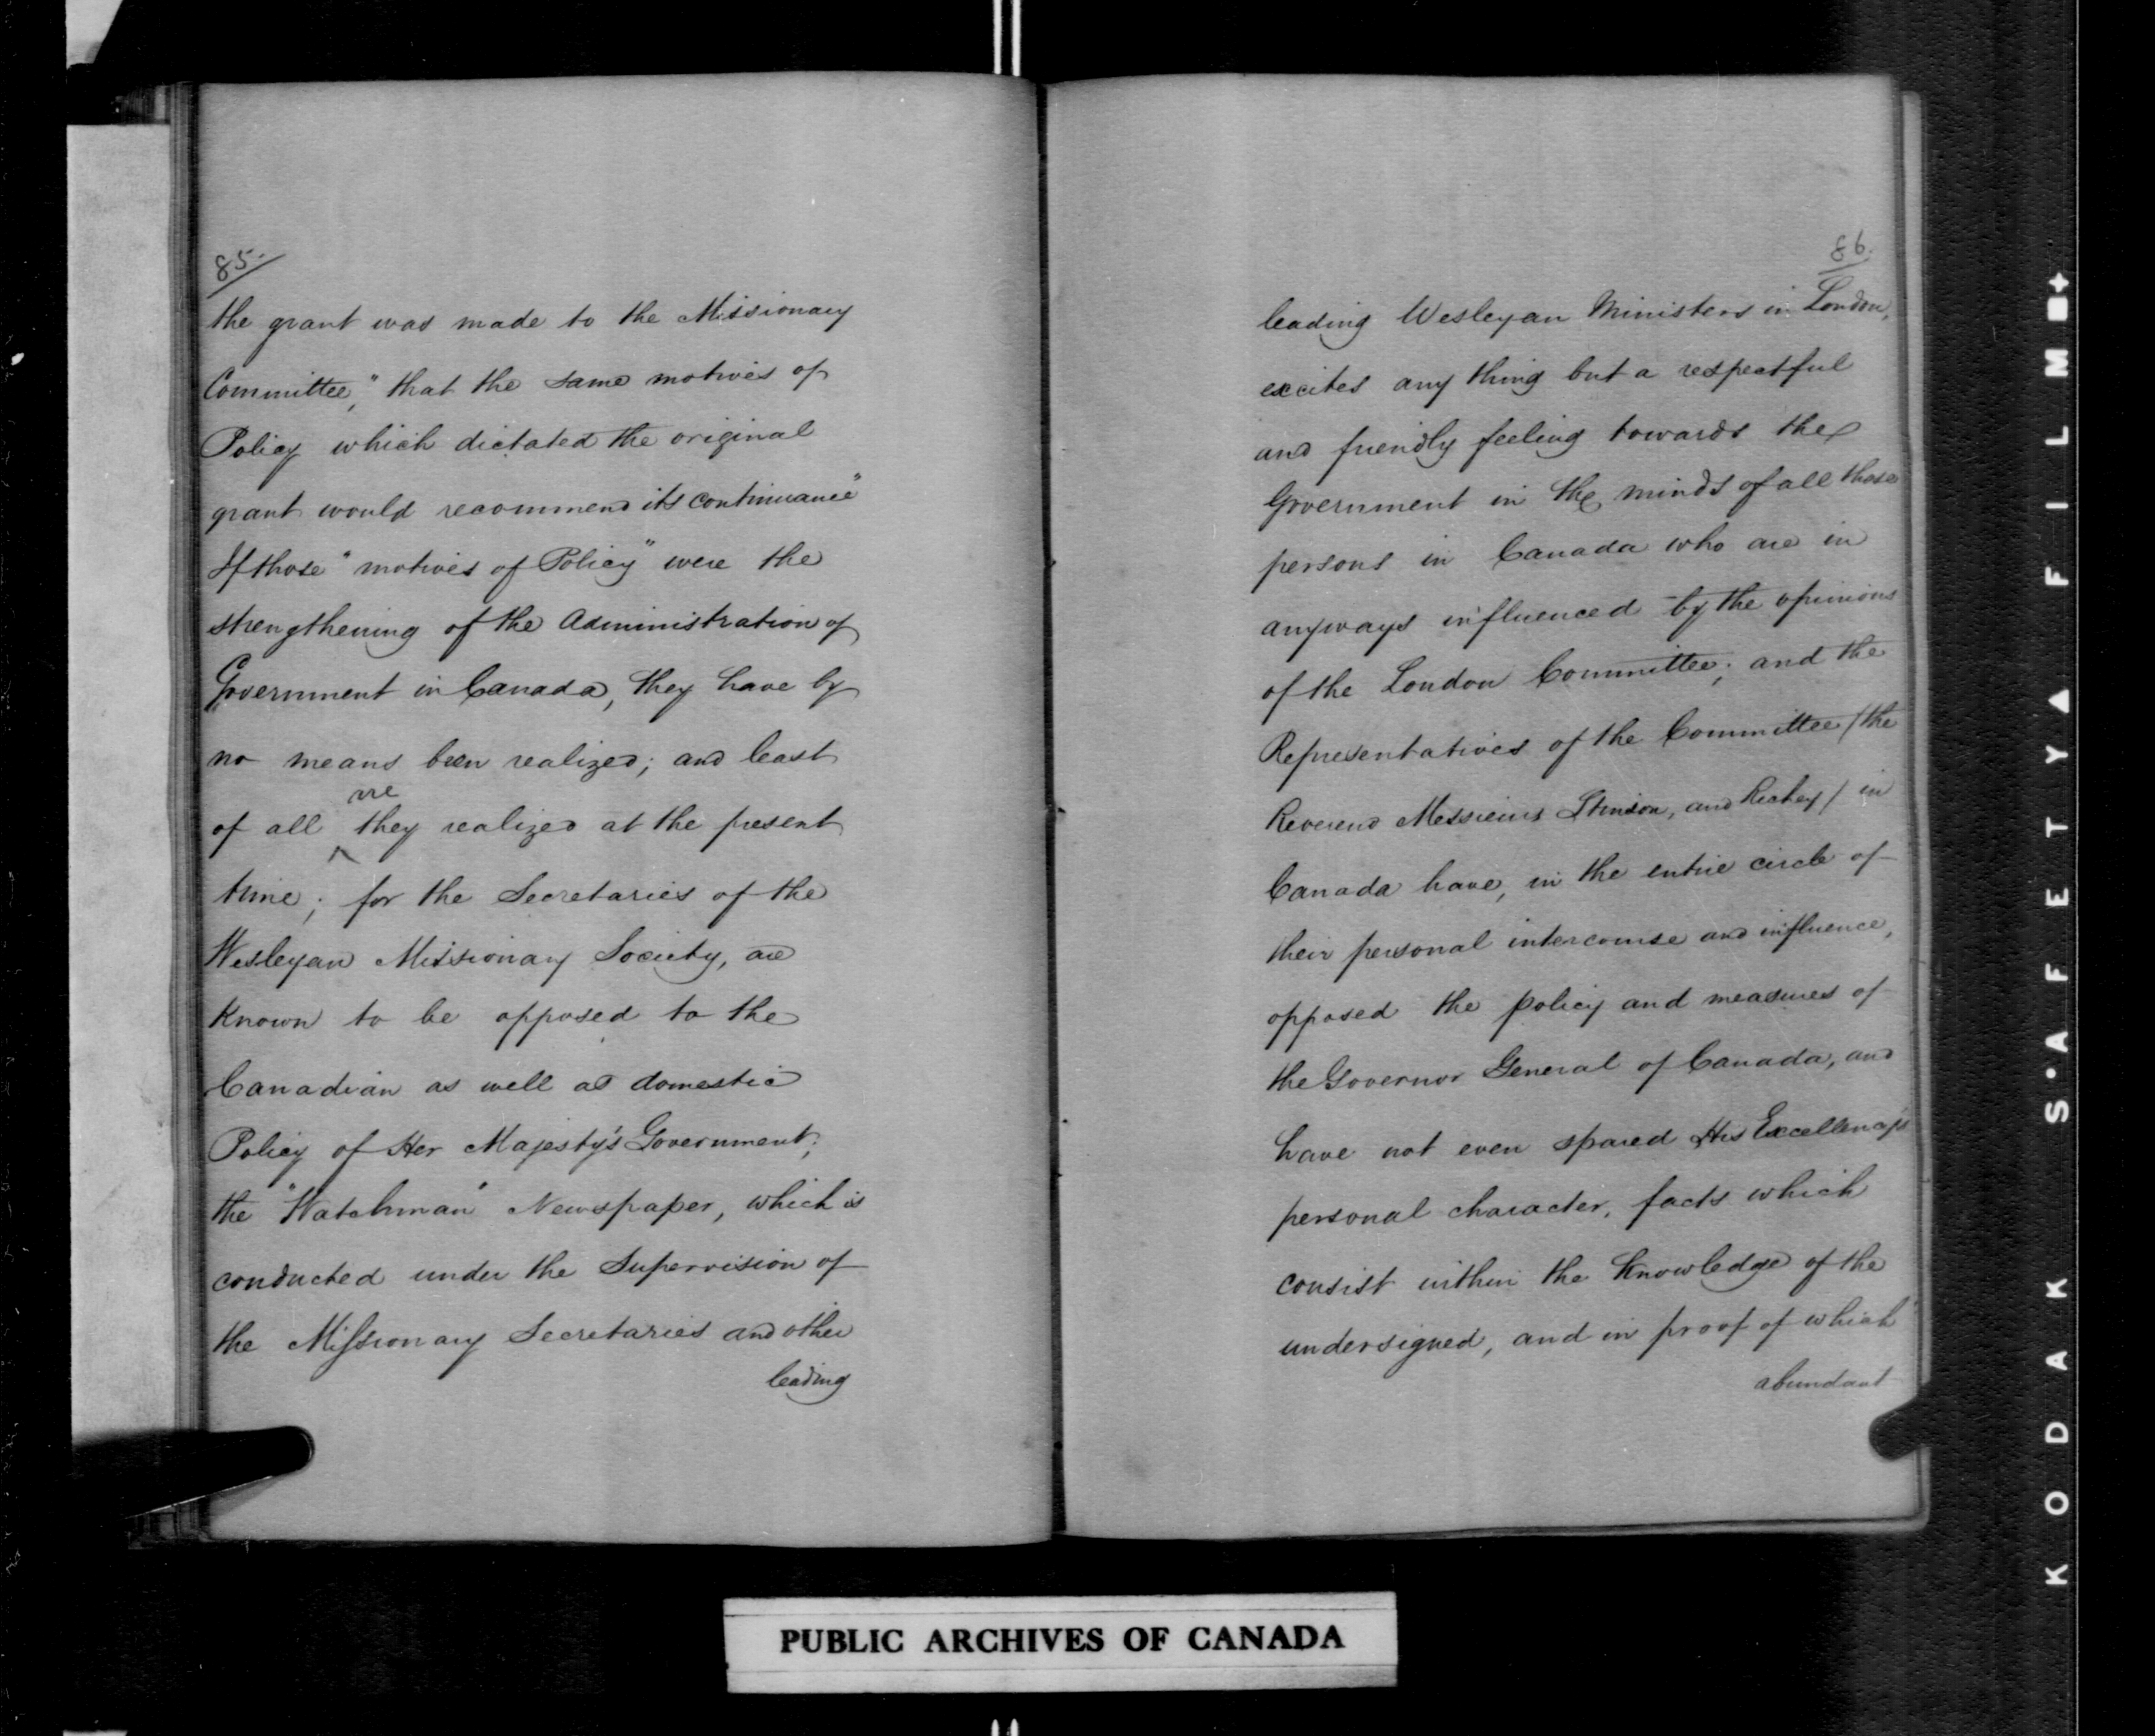 85.
the grant was made to the Missionary
Committee," that the same motives of
Policy which dictated the original
grant would recommend its continuance"
If those "motives of Policy" were the
strengthening of the Administration of
Government in Canada, they have by
no means been realized; and least
are
of all they realized at the present
time; for the Secretaries of the
Wesleyan Missionary Society, are
Known to be opposed to the
Canadian as well as domestic
Policy of Her Majesty's Government;
the "Watchman" Newspaper, which is
conducted under the Supervision of
the Missionary Secretaries and other
leading
86.
leading Wesleyan Ministers in London,
excites any thing but a respectful
and friendly feeling towards the
Government in the minds of all those
persons in Canada who are in
anyways influenced by the opinions
of the London Committee; and the
Representatives of the Committee /the
Reverend Messieurs Stinson, and Richey/ in
Canada have, in the entire circle of
their personal intercourse and influence,
opposed the policy and measures of
the Governor General of Canada, and
have not even spared His Excellency's
personal character, facts which
consist within the Knowledge of the
undersigned, and in proof of which
abundant
PUBLIC ARCHIVES OF CANADA
KODAK S·AFETY▲FILM